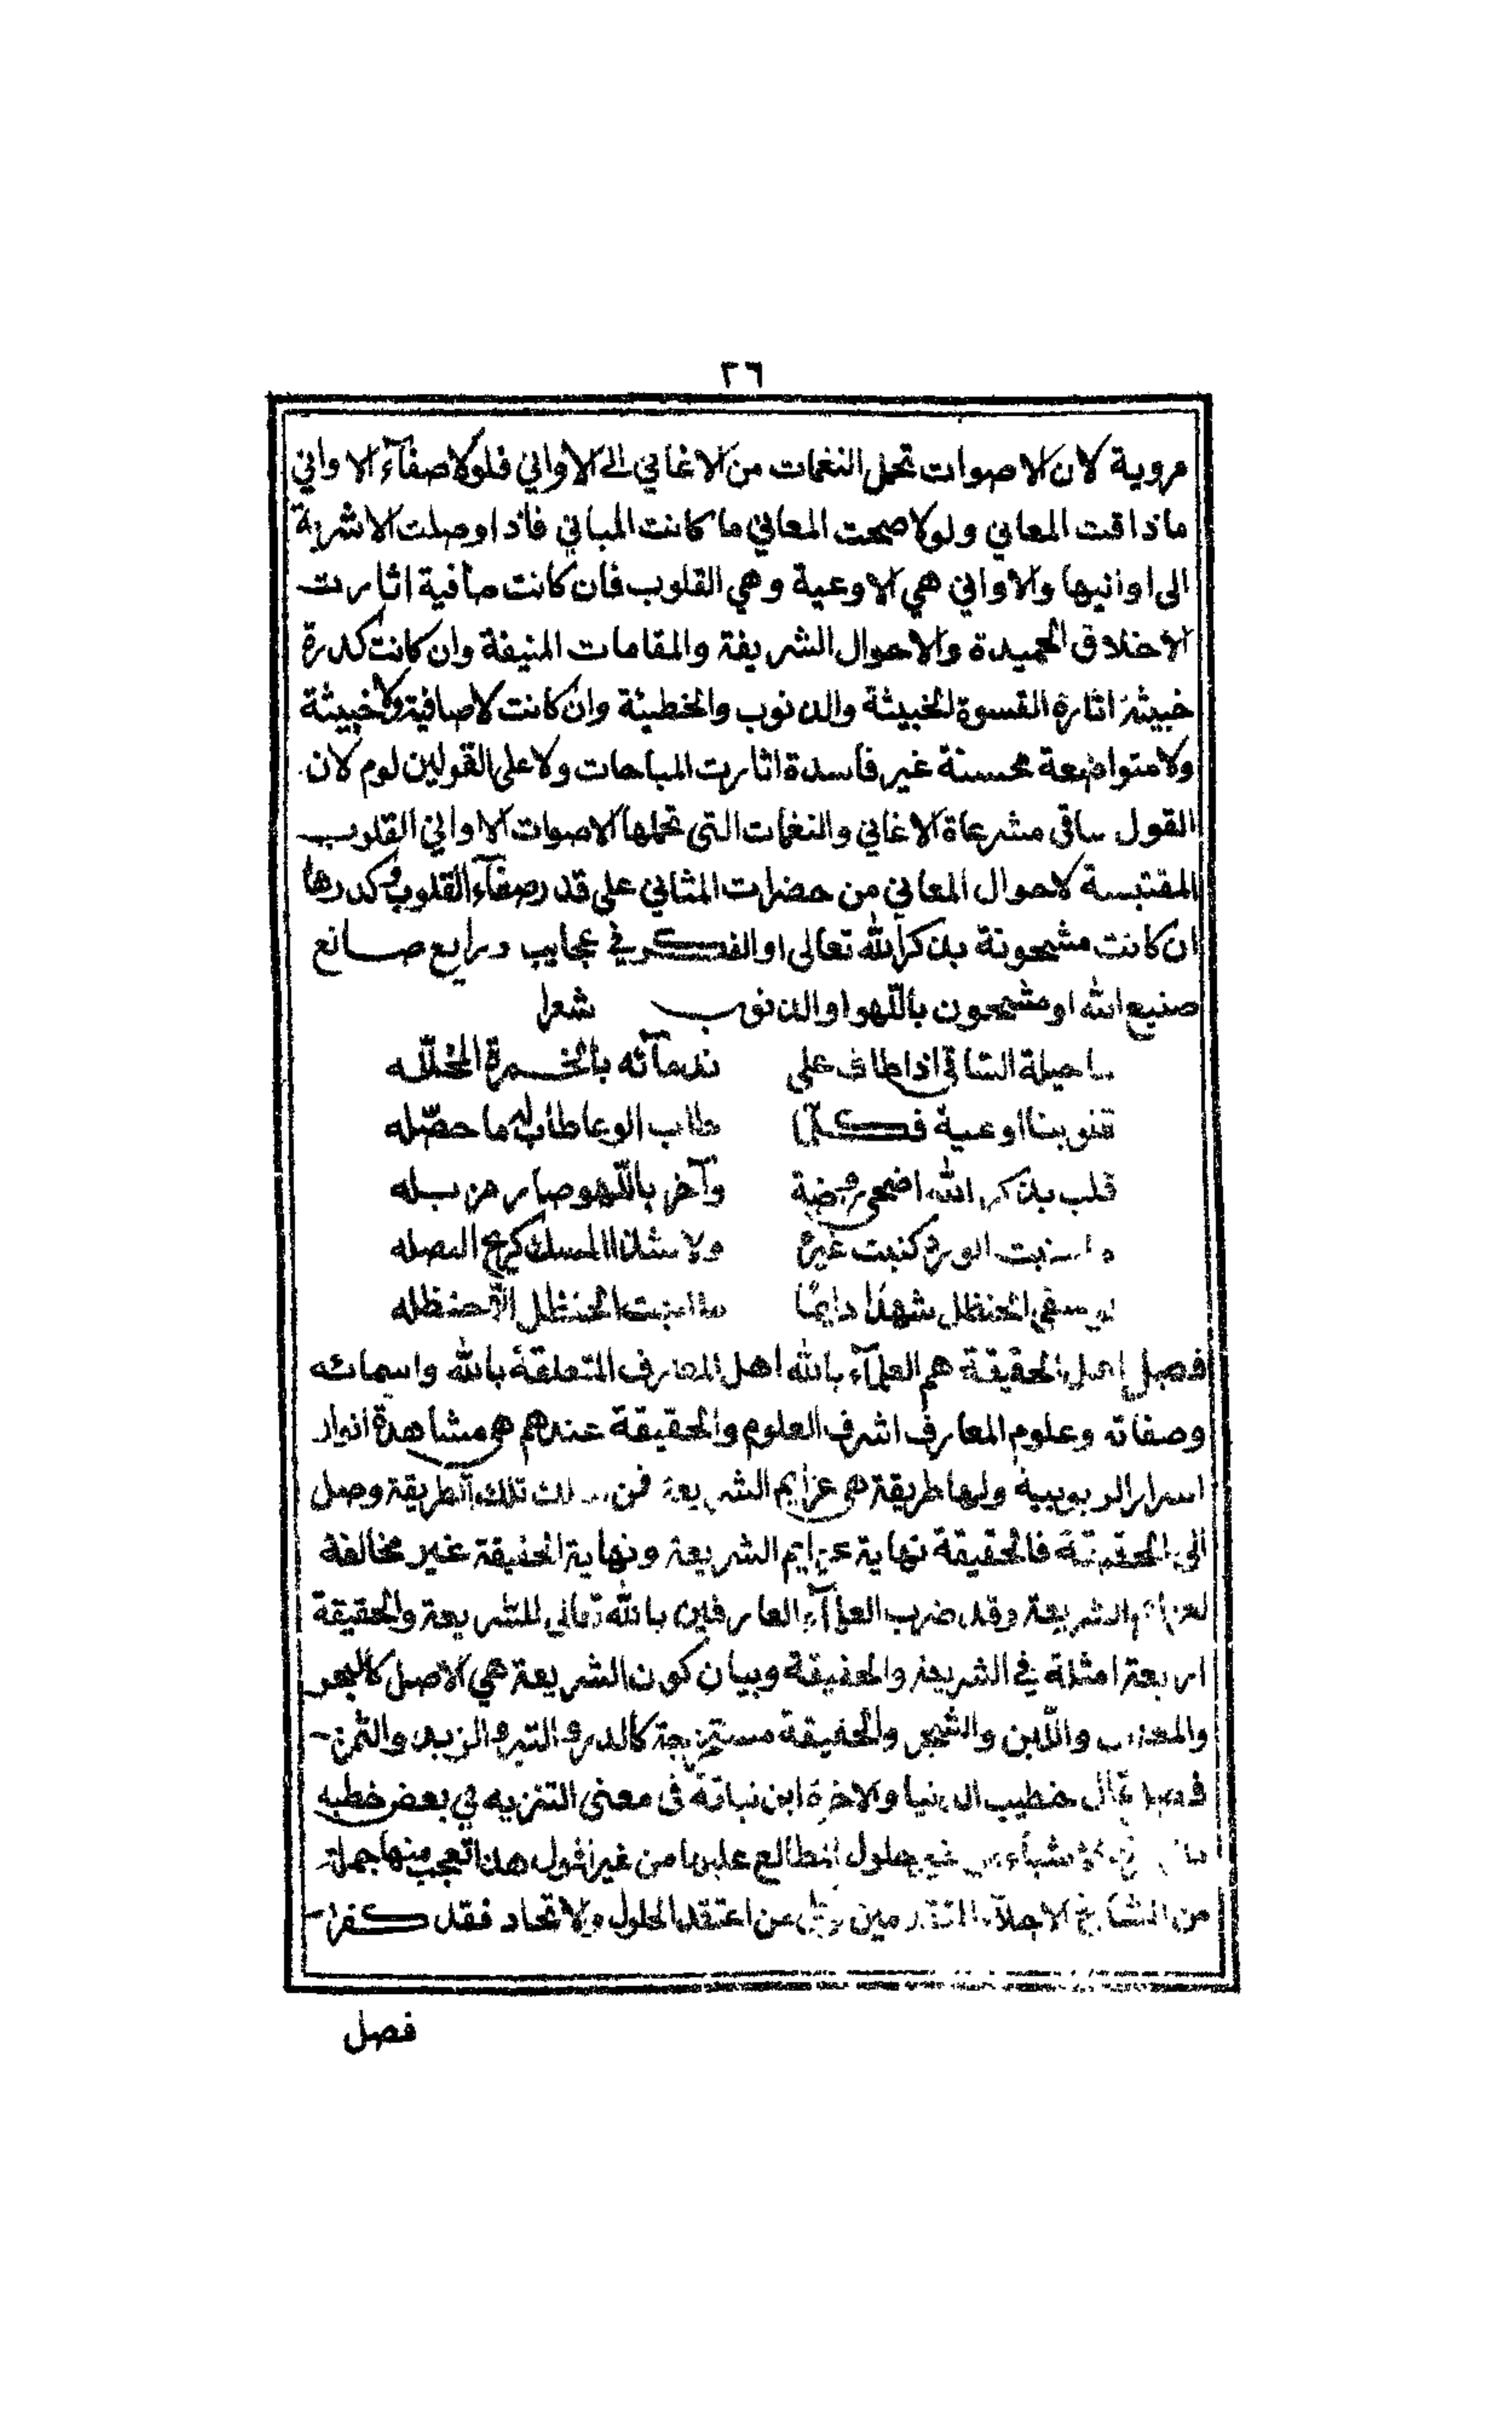 ٢٦
مروية لان الاصوات تحمل النغمات من الاغاني الى الاواني فلولا صفآء الاواني
ماذاقت المعاني ولولا صحت المعاني ما كانت المباني فاذا وصلت الاشربة
الى اوانيها والاواني هي الاوعية وهي القلوب فان كانت صافية اثارت
الاخلاق الحميدة والاحوال الشريفة والمقامات المنيفة وان كانت كدرة
خبيثة اثارة القسوة الخبيثة والذنوب والخطيئة وان كانت لاصافية ولاخبيثة
ولامتواضعة محسنة غير فاسدة اثارت المباحات ولا على القولين لوم لان
القول ساقى مشرعاة الاغاني والنغمات التى تحملها الاصوات الاواني القلوب
المقتبسة لاحوال المعاني من حضرات المثاني على قدر صفآء القلوب وكدرها
ان كانت مشحونة بذكر الله تعالى او الفكر في عجايب صانع
صنيع الله او مشحون باللهو او الذنوب شعرا
ما حيلة الساقي اذا طاف على ندمآئه بالخمرة المخلله
قلوبنا اوعية فكلما طاب الوعا طاب له ما حصّله
قلب بذكر الله اضحى روضة وآخر باللهو صار مزبله
نبت الورد كنبت غيره ولا شذا المسك كريح البصله
لو سقى الحنظل شهدا دايمًا ما انبت الحنظل الا حنظله
فصل اهل الحقيقة هم العلمآء بالله اهل المعارف المتعلقة بالله واسمائه
وصفاته وعلوم المعارف اشرف العلوم والحقيقة عندهم هى مشاهدة انوار
اسرار الربوبية ولها طريقة هى عزايم الشريعة فمن سلك تلك الطريقة وصل
الى الحقيقة فالحقيقة نهاية عزايم الشريعة ونهاية الحقيقة غير مخالفة
لعزايم الشريعة وقد ضرب العلمآء العارفين بالله تعالى للشريعة والحقيقة
اربعة امثلة في الشريعة والحقيقة وبيان كون الشريعة هي الاصل كالبحر
والمعدن واللبن والشجر والحقيقة مستخرجة كالدر والتبر والزبد والثمر
فصل قال خطيب الدنيا والاخرة ابن نباتة فى معنى التنزيه في بعض خطبه
الاشياء من غير حلول المطالع عليها من غير افول هذا تعجب منها جملة
من المشايخ الاجلآء المتقدمين من اعتقد الحلول والاتحاد فقد كفر
فصل